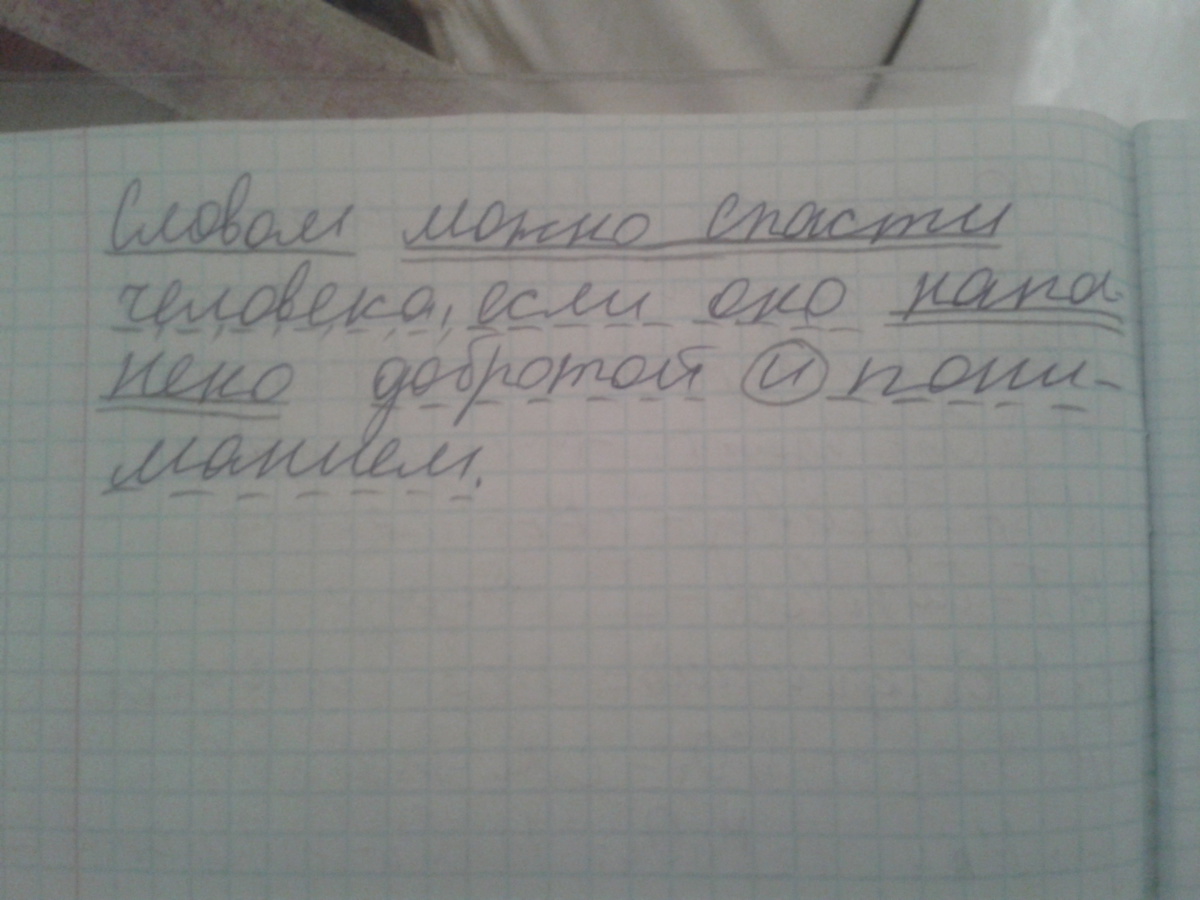 Словом можно спасти
человека, если оно напол-
нено добротой и пони-
манием.